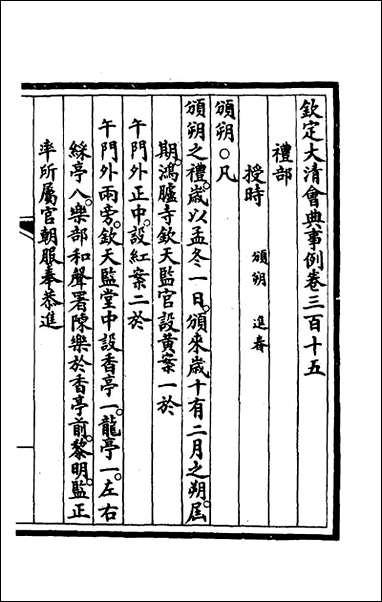 欽定大清會典事例卷三百十五
禮部
授時 頒朔 進春
頒朔○凡
頒朔之禮。歲以孟冬一日。頒來歲十有二月之朔。屆
期。鴻臚寺欽天監官設黃案一於
午門外正中。設紅案二於
午門外兩旁。欽天監堂中設香亭一。龍亭一。左右
綵亭八。樂部和聲署陳樂於香亭前。黎明。監正
率所屬官朝服奉恭進